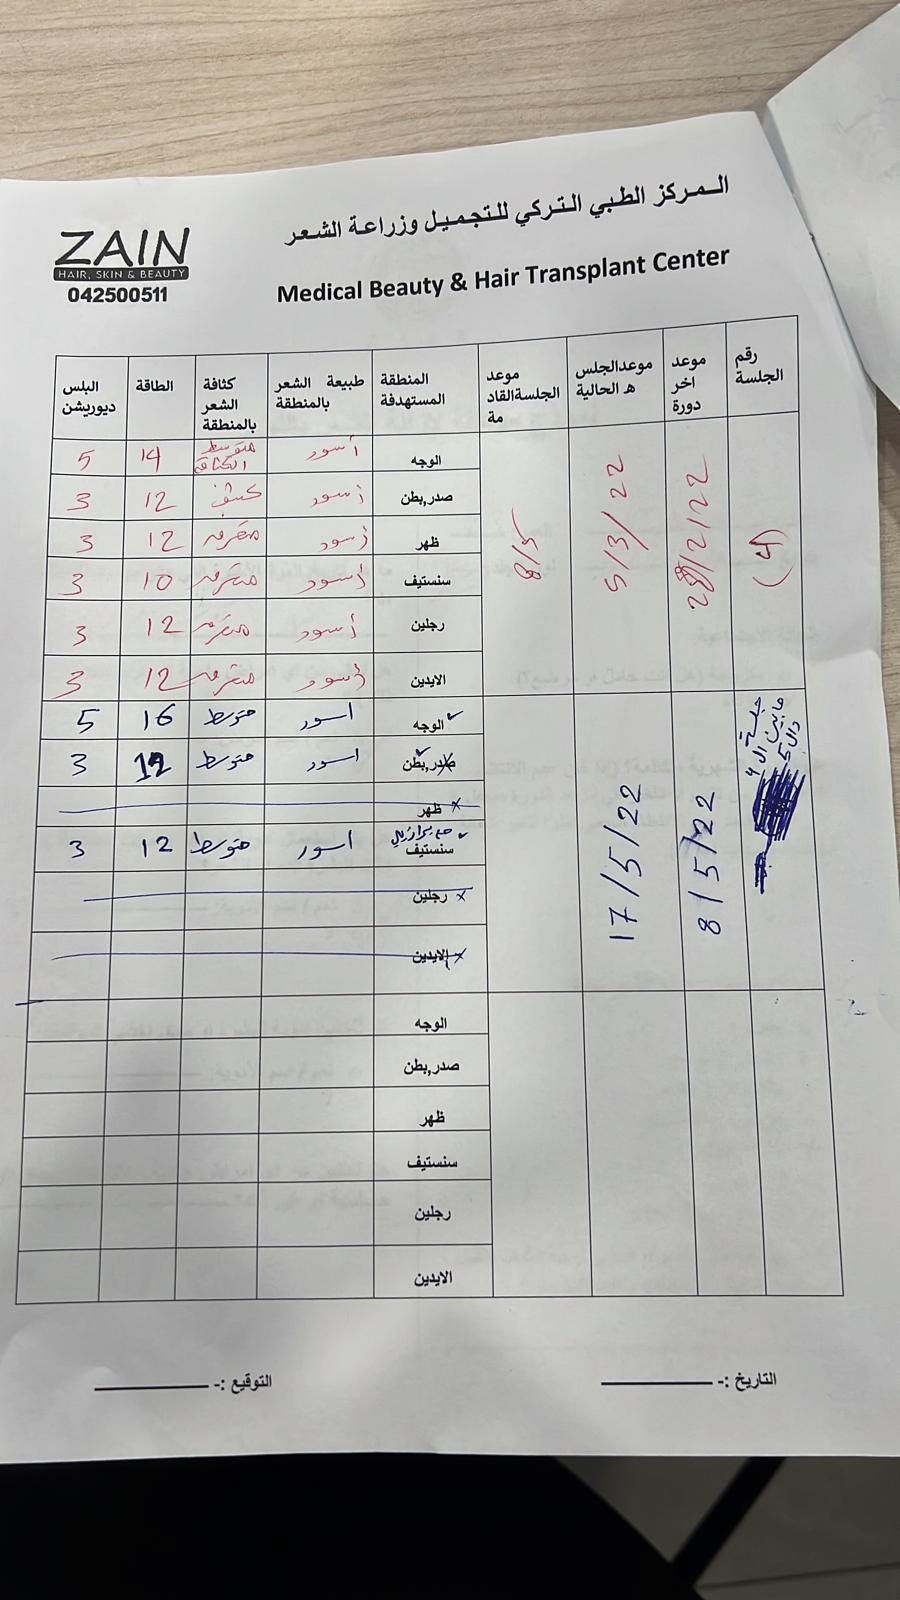 المركز الطبي التركي للتجميل وزراعة الشعر
ZAIN
HAIR, SKIN & BEAUTY
042500511
Medical Beauty & Hair Transplant Center
رقم الجلسة
موعد اخر دورة
موعدالجلس ه الحالية
موعد الجلسةالقاد مة
المنطقة المستهدفة
طبيعة الشعر بالمنطقة
كثافة الشعر بالمنطقة
الطاقة
البلس ديوريشن
(4)
2/22
5/3/22
8/5
الوجه أسود متوسط الكثافة 14 5
صدر,بطن أسود كثيف 12 3
ظهر أسود متفرقه 12 3
سنستيف أسود متفرقه 10 3
رجلين أسود متفرقه 12 3
الايدين أسود متفرقه 12 3
جلسة
مابين ال 4
وال 5
8/5/22
17/5/22
الوجه اسود متوسط 16 5
صدر,بطن اسود متوسط 12 3
ظهر
سنستيف مع برازيلي اسود متوسط 12 3
رجلين
الايدين
الوجه
صدر,بطن
ظهر
سنستيف
رجلين
الايدين
التاريخ :- التوقيع :-